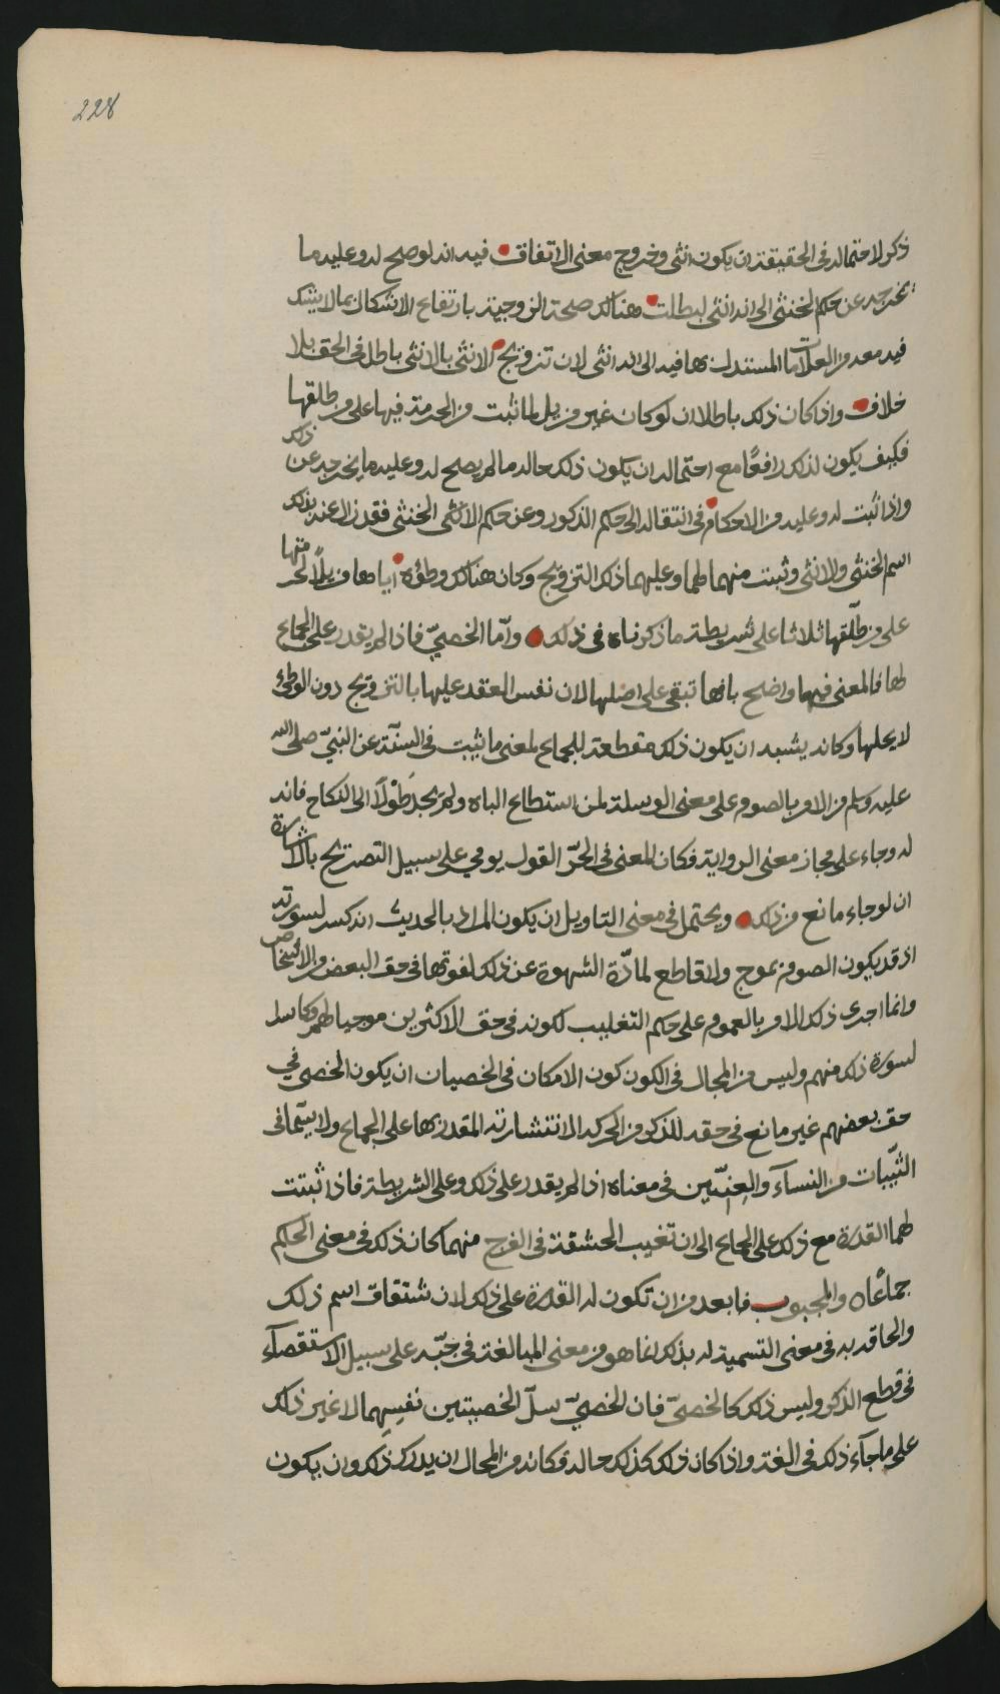 228
ذكر لاحتماله فى الحقيقة ان يكون انثى وخروج معنى الاتفاق فيه انه لوصح له وعليه ما
يخرجه عن حكم الخنثى الى انه انثى لبطلت هنالك صحة الزوجية بارتفاع الاشكال بما لا يشك
فيه معه من العلامات المستدل بها فيه الى انه انثى لان تزويج الانثى بالانثى باطل فى الحق بلا
خلاف واذا كان ذلك باطلا ان لو كان غير مزيل لما ثبت من الحرمة فيها على من طلقها
فكيف يكون لذلك رافعًا مع احتماله ان يكون ذلك حاله ما لم يصح له وعليه ما يخرجه عن ذلك
واذا ثبت له وعليه من الاحكام فى انتقاله الى حكم الذكور وعن حكم الانثى الخنثى فقد زال عنه بذلك
اسم الخنثى والانثى وثبت منهما لهما وعليهما ذكر التزويج وكان هناك وطؤه اياها مزيلًا لحرمتها
على من طلّقها ثلاثا على شريطة ما ذكرناه فى ذلك وامّا الخصيّ فاذا لم يقدر على الجماع
لها فالمعنى فيها واضح بانها تبقى على اصلها لان نفس العقد عليها بالتزويج دون الوطئ
لا يحلها وكانه يشبه ان يكون ذلك مقطعة للجماع لمعنى ما ثبت فى السنّة عن النبيّ صلى الله
عليه وسلم من الامر بالصوم على معنى الوسلة لمن استطاع الباه ولم يجد طَوْلًا الى النكاح فانه
له وجاء على مجاز معنى الرواية فكان المعنى فى الحرّ القول يومي على سبيل التصريح بالاشارة
ان لو جاء مانع من ذلك ويحتمل فى معنى التاويل ان يكون المراد بالحديث انه كسر لسورته
اذ قد يكون الصوم بموج ولا قاطع لمادّة الشهوة عن ذلك لقوتها فى حق البعض من الاشخاص
وانما اجرى ذلك الامر بالعموم على حكم التغليب لكونه فى حق الاكثرين موجيا لهم وكاسل
لسورة ذلك منهم وليس من المحال فى الكون كون الامكان فى الخصيان ان يكون الخصي في
حق بعضهم غير مانع فى حقه للذكر من الحركة الانتشارته المقدر بها على الجماع ولا سيّما فى
الثيّبات من النسآء والعنّين فى معناه اذا لم يقدر على ذلك وعلى الشريطة فاذا ثبتت
لهما القدرة مع ذلك على الجماع الى ان تغيب الحشفة فى الفرج منهما كان ذلك فى معنى الحكم
جماعًا ه والمجبوب فابعد من ان تكون له القدرة على ذلك لان شتقاق اسم ذلك
والحاقه به فى معنى التسمية له بذلك انما هو من معنى المبالغة فى جَبّه على سبيل الاستقصآء
فى قطع الذكر وليس ذلك كالخصيّ فان الخصيّ سلّ الخصيتين نفسِهما لا غير ذلك
على ما جآء ذلك فى الغة واذا كان ذلك كذلك حاله فكانه من المحال ان يدرك ذلك وان يكون